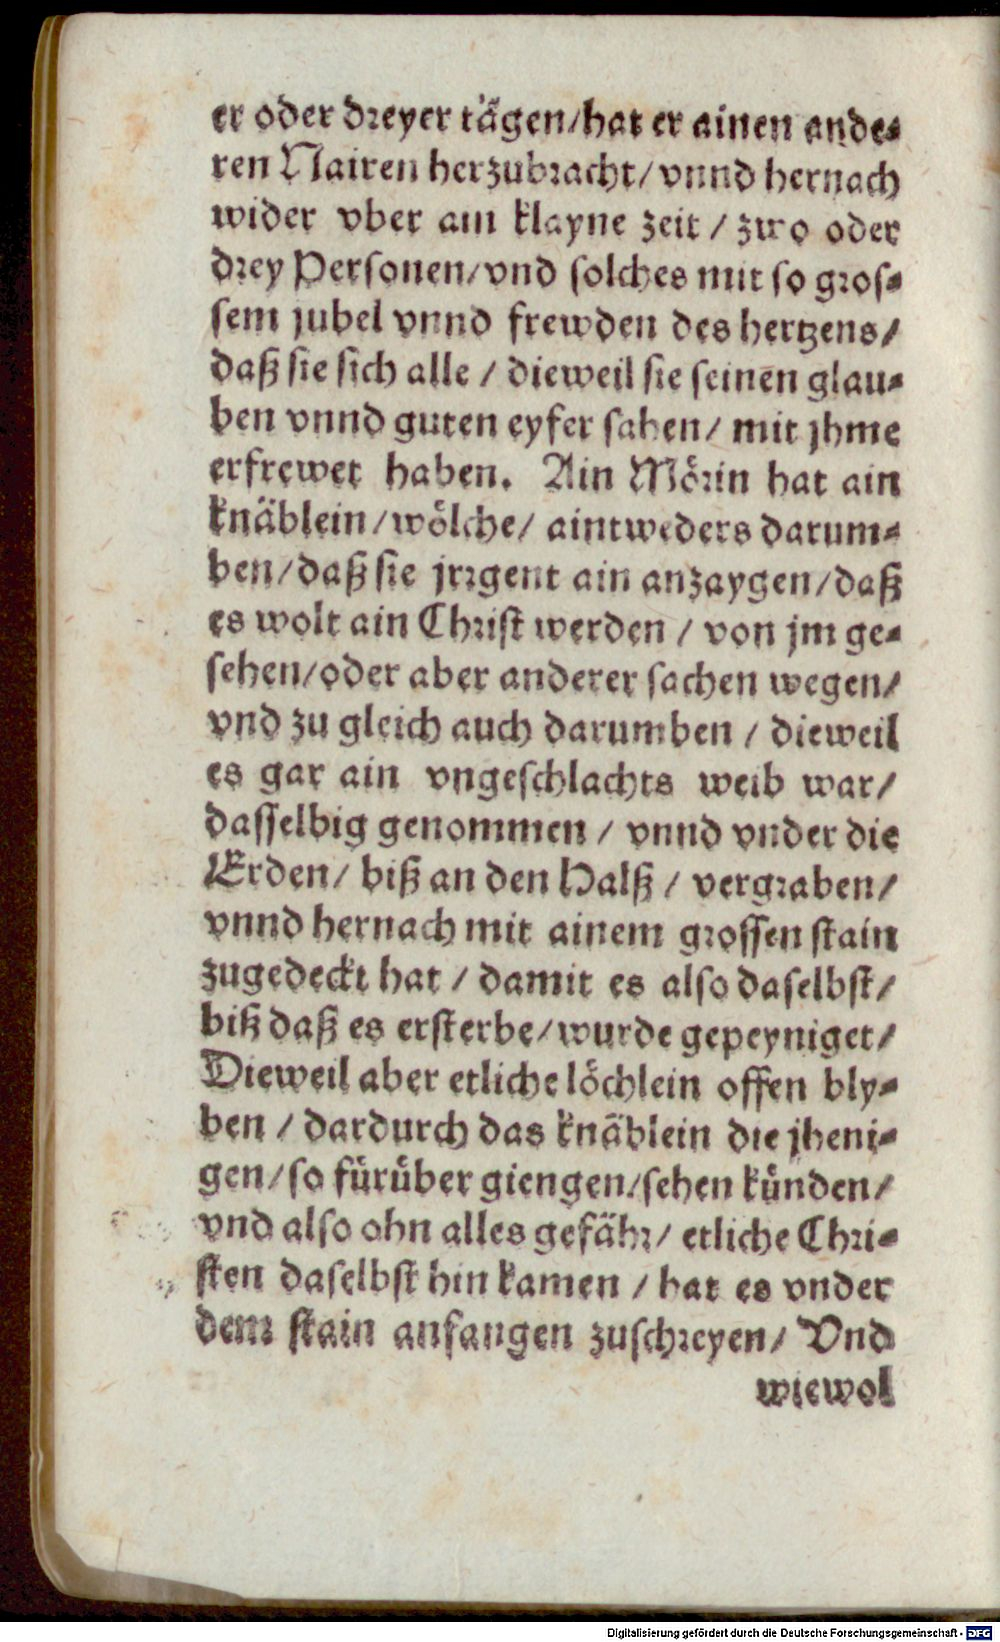 er oder dreyer tägen/hat er ainen ande⸗
ren Nairen herzubracht/ vnnd hernach
wider vber ain klayne zeit / zwo oder
drey Personen/vnd solches mit so gros⸗
sem jubel vnnd frewden des hertzens/
daß sie sich alle / dieweil sie seinen glau⸗
ben vnnd guten eyfer sahen/ mit jhme
erfrewet haben. Ain Mörin hat ain
knäblein/wölche/ aintweders darum⸗
ben/daß sie jrrgent ain anzaygen/daß
es wolt ain Christ werden / von jm ge⸗
sehen/oder aber anderer sachen wegen/
vnd zu gleich auch darumben / dieweil
es gar ain vngeschlachts weib war/
dasselbig genommen / vnnd vnder die
Erden/ biß an den Halß / vergraben/
vnnd hernach mit ainem grossen stain
zugedeckt hat / damit es also daselbst/
biß daß es ersterbe/wurde gepeyniget/
Dieweil aber etliche löchlein offen bly⸗
ben / dardurch das knäblein die jheni⸗
gen/so fürüber giengen/sehen künden/
vnd also ohn alles gefähr/ etliche Chri⸗
sten daselbst hin kamen / hat es vnder
dem stain anfangen zuschreyen/ Vnd
wiewol
Digitalisierung gefördert durch die Deutsche Forschungsgemeinschaft - DFG